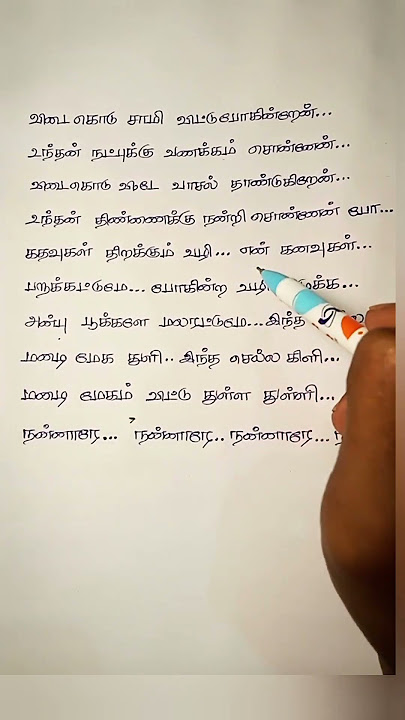 விடை கொடு சாமி விட்டுபோகின்றேன்...
உந்தன் நட்புக்கு வணக்கம் சொன்னேன்...
விடை கொடு வீடே வாசல் தாண்டுகிறேன்...
உந்தன் திண்ணைக்கு நன்றி சொன்னேன் போ...
கதவுகள் திறக்கும் வழி... என் கனவுகள்...
பறக்கட்டுமே... போகின்ற
அன்பு பூக்களே மலரட்டுமே... இந்த
மழை மேக துளி.. இந்த செல்ல கிளி...
மழை மேகம் விட்டு துள்ள துள்ளி...
நன்னாரே... நன்னாரே.. நன்னாரே...